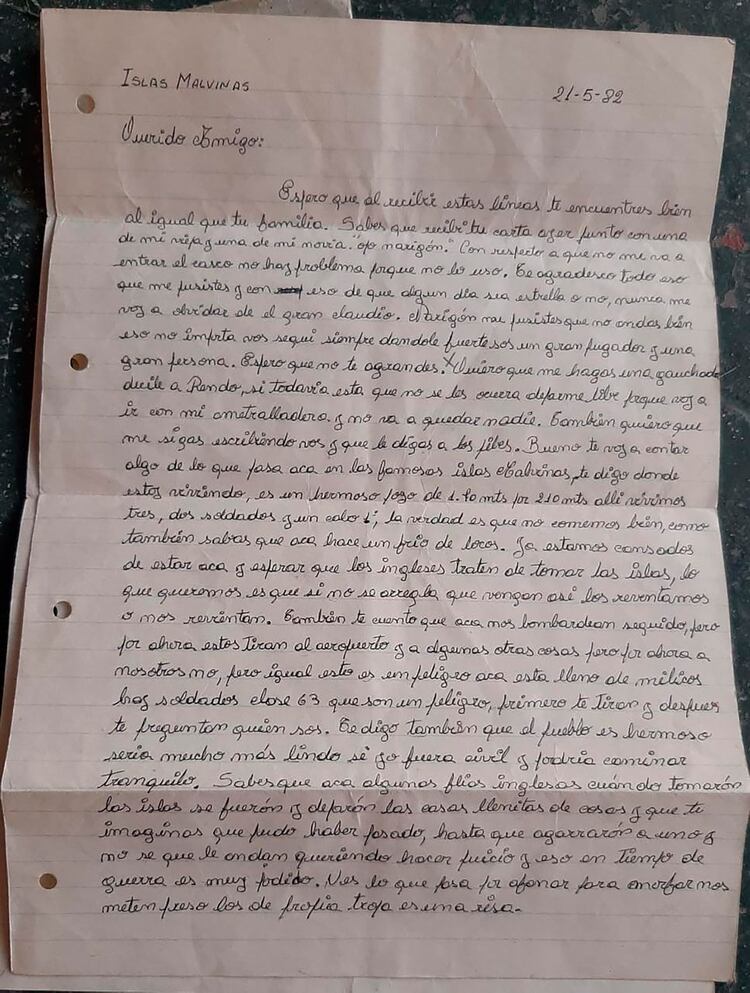 ISLAS MALVINAS
21-5-82
Querido Amigo:
Espero que al recibir estas lineas te encuentres bien
al igual que tu familia. Sabes que recibi tu carta ayer junto con una
de mi vieja y una de mi novia. "ojo narigón." Con respecto a que no me va a
entrar el casco no hay problema porque no lo uso. Te agradesco todo eso
que me pusistes y con eso de que algun dia sea estrella o no, nunca me
voy a olvidar de el gran claudio. Narigón me pusistes que no andas bien
eso no imprta vos segui siempre dandole fuerte sos un gran jugador y una
gran persona. Espero que no te agrandes. Quiero que me hagas una gauchada
decile a Rendo, si todavia esta que no se les ocurra dejarme libre porque voy a
ir con mi ametralladora y no va a quedar nadie. Tambien quiero que
me sigas escribiendo vos y que le digas a los pibes. Bueno te voy a contar
algo de lo que pasa aca en las famosas islas Malvinas, te digo donde
estoy viviendo, es un hermoso pozo de 1.90 mts por 2.10 mts alli vivimos
tres, dos soldados y un cabo 1º, la verdad es que no comemos bien, como
también sabras que aca hace un frio de locos. Ya estamos cansados
de estar aca y esperar que los ingleses traten de tomar las islas, lo
que queremos es que si no se arregla que vengan asi los reventamos
o nos revientan. Tambien te cuento que aca nos bombardean seguido, pero
por ahora estos tiran al aeropuerto y a algunas otras cosas pero por ahora a
nosotros no, pero igual esto es un peligro aca esta lleno de milicos
hay soldados clase 63 que son un peligro, primero te tiran y despues
te preguntan quien sos. Te digo también que el pueblo es hermoso
seria mucho más lindo si yo fuera civil y podria caminar
tranquilo. Sabes que aca algunas flias inglesas cuándo tomarón
las islas se fuerón y dejarón las casas llenitas de cosas y que te
imaginas que pudo haber pasado, hasta que agarrarón a uno y
no se que le andan queriendo hacer juicio y eso en tiempo de
guerra es muy jodido. Ves lo que pasa por afanar para morfar nos
meten preso los de propia tropa es una risa.